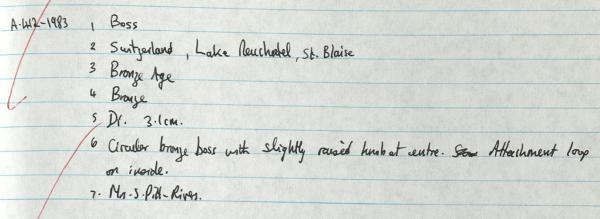 A.412-1983 1 Boss
2 Switzerland, Lake Neuchatel, St. Blaise
3 Bronze Age
4 Bronze
5 Dr. 3.1cm.
6 Circular bronze boss with slightly raised knob at centre. Attachment loop
on inside.
7. Mr. S. Pitt-Rivers.